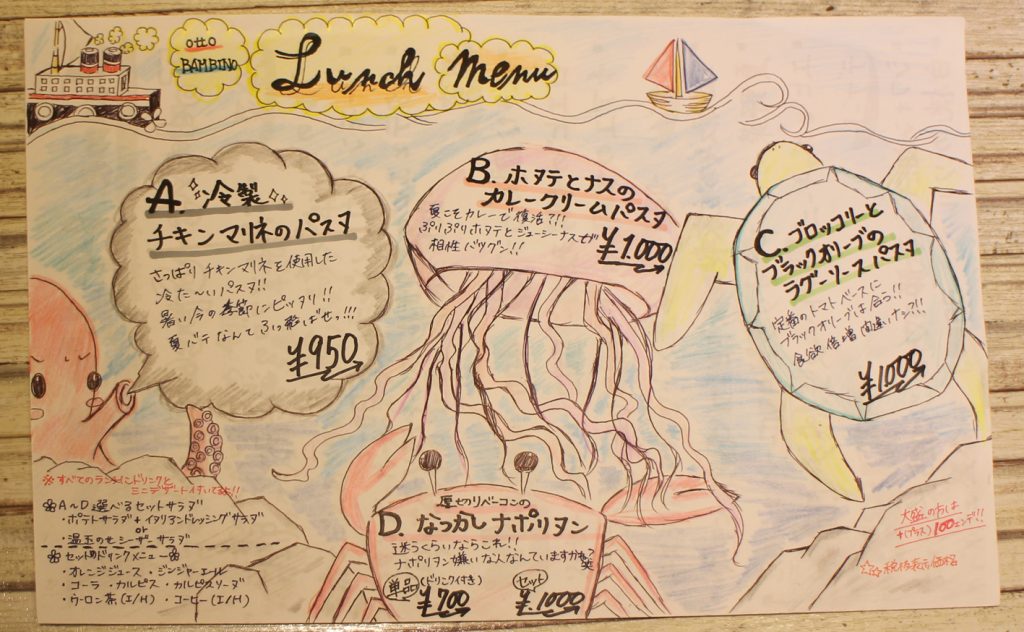 otto
BAMBINO
Lunch Menu
A. 冷製
チキンマリネのパスタ
さっぱりチキンマリネを使用した
冷た〜いパスタ!!
暑い今の季節にピッタリ!!
夏バテなんてろっ飛ばせっ!!!
¥950
B. ホタテとナスの
カレークリームパスタ
夏こそカレーで復活?!!
ぷりぷりホタテとジューシーナスが
相性バツグン!!
¥1.000
C. ブロッコリーと
ブラックオリーブの
ラグーソースパスタ
定番のトマトベースに
ブラックオリーブは合う!!
食欲倍増間違いナシ?!!
¥1000
厚切りベーコンの
D. なつかしナポリタン
迷うくらいならこれ!!
ナポリタン嫌いな人なんていますかね?笑
単品(ドリンク付き)
¥700
セット
¥1000
※すべてのランチにドリンクと
ミニデザート付いてます!!
A〜D選べるセットサラダ
・ポテトサラダ+イタリアンドレッシングサラダ
or
・温玉のせシーザーサラダ
セットのドリンクメニュー
・オレンジジュース ・ジンジャーエール
・コーラ ・カルピス ・カルピスソーダ
・ウーロン茶(I/H) ・コーヒー(I/H)
大盛の方は
+(プラス)100エンデ!!
☆☆税抜表示価格